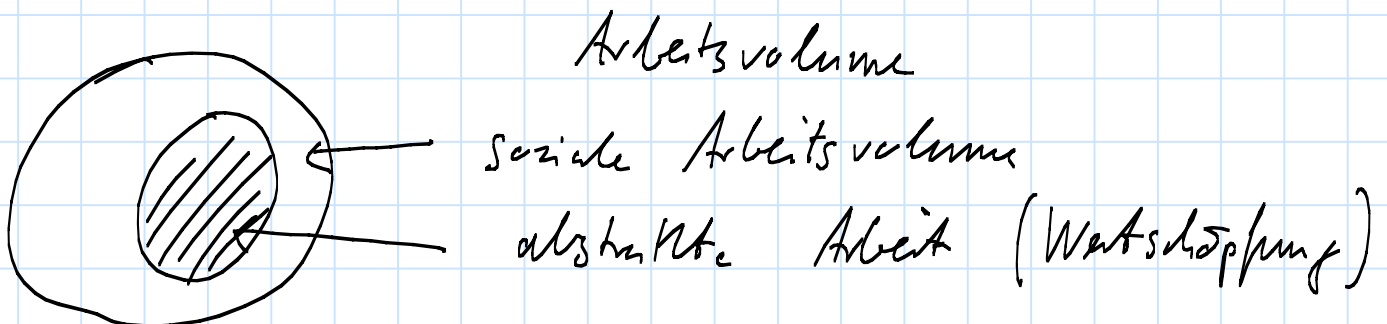 Arbeitsvolume
soziale Arbeitsvolume
abstrakte Arbeit (Wertschöpfung)